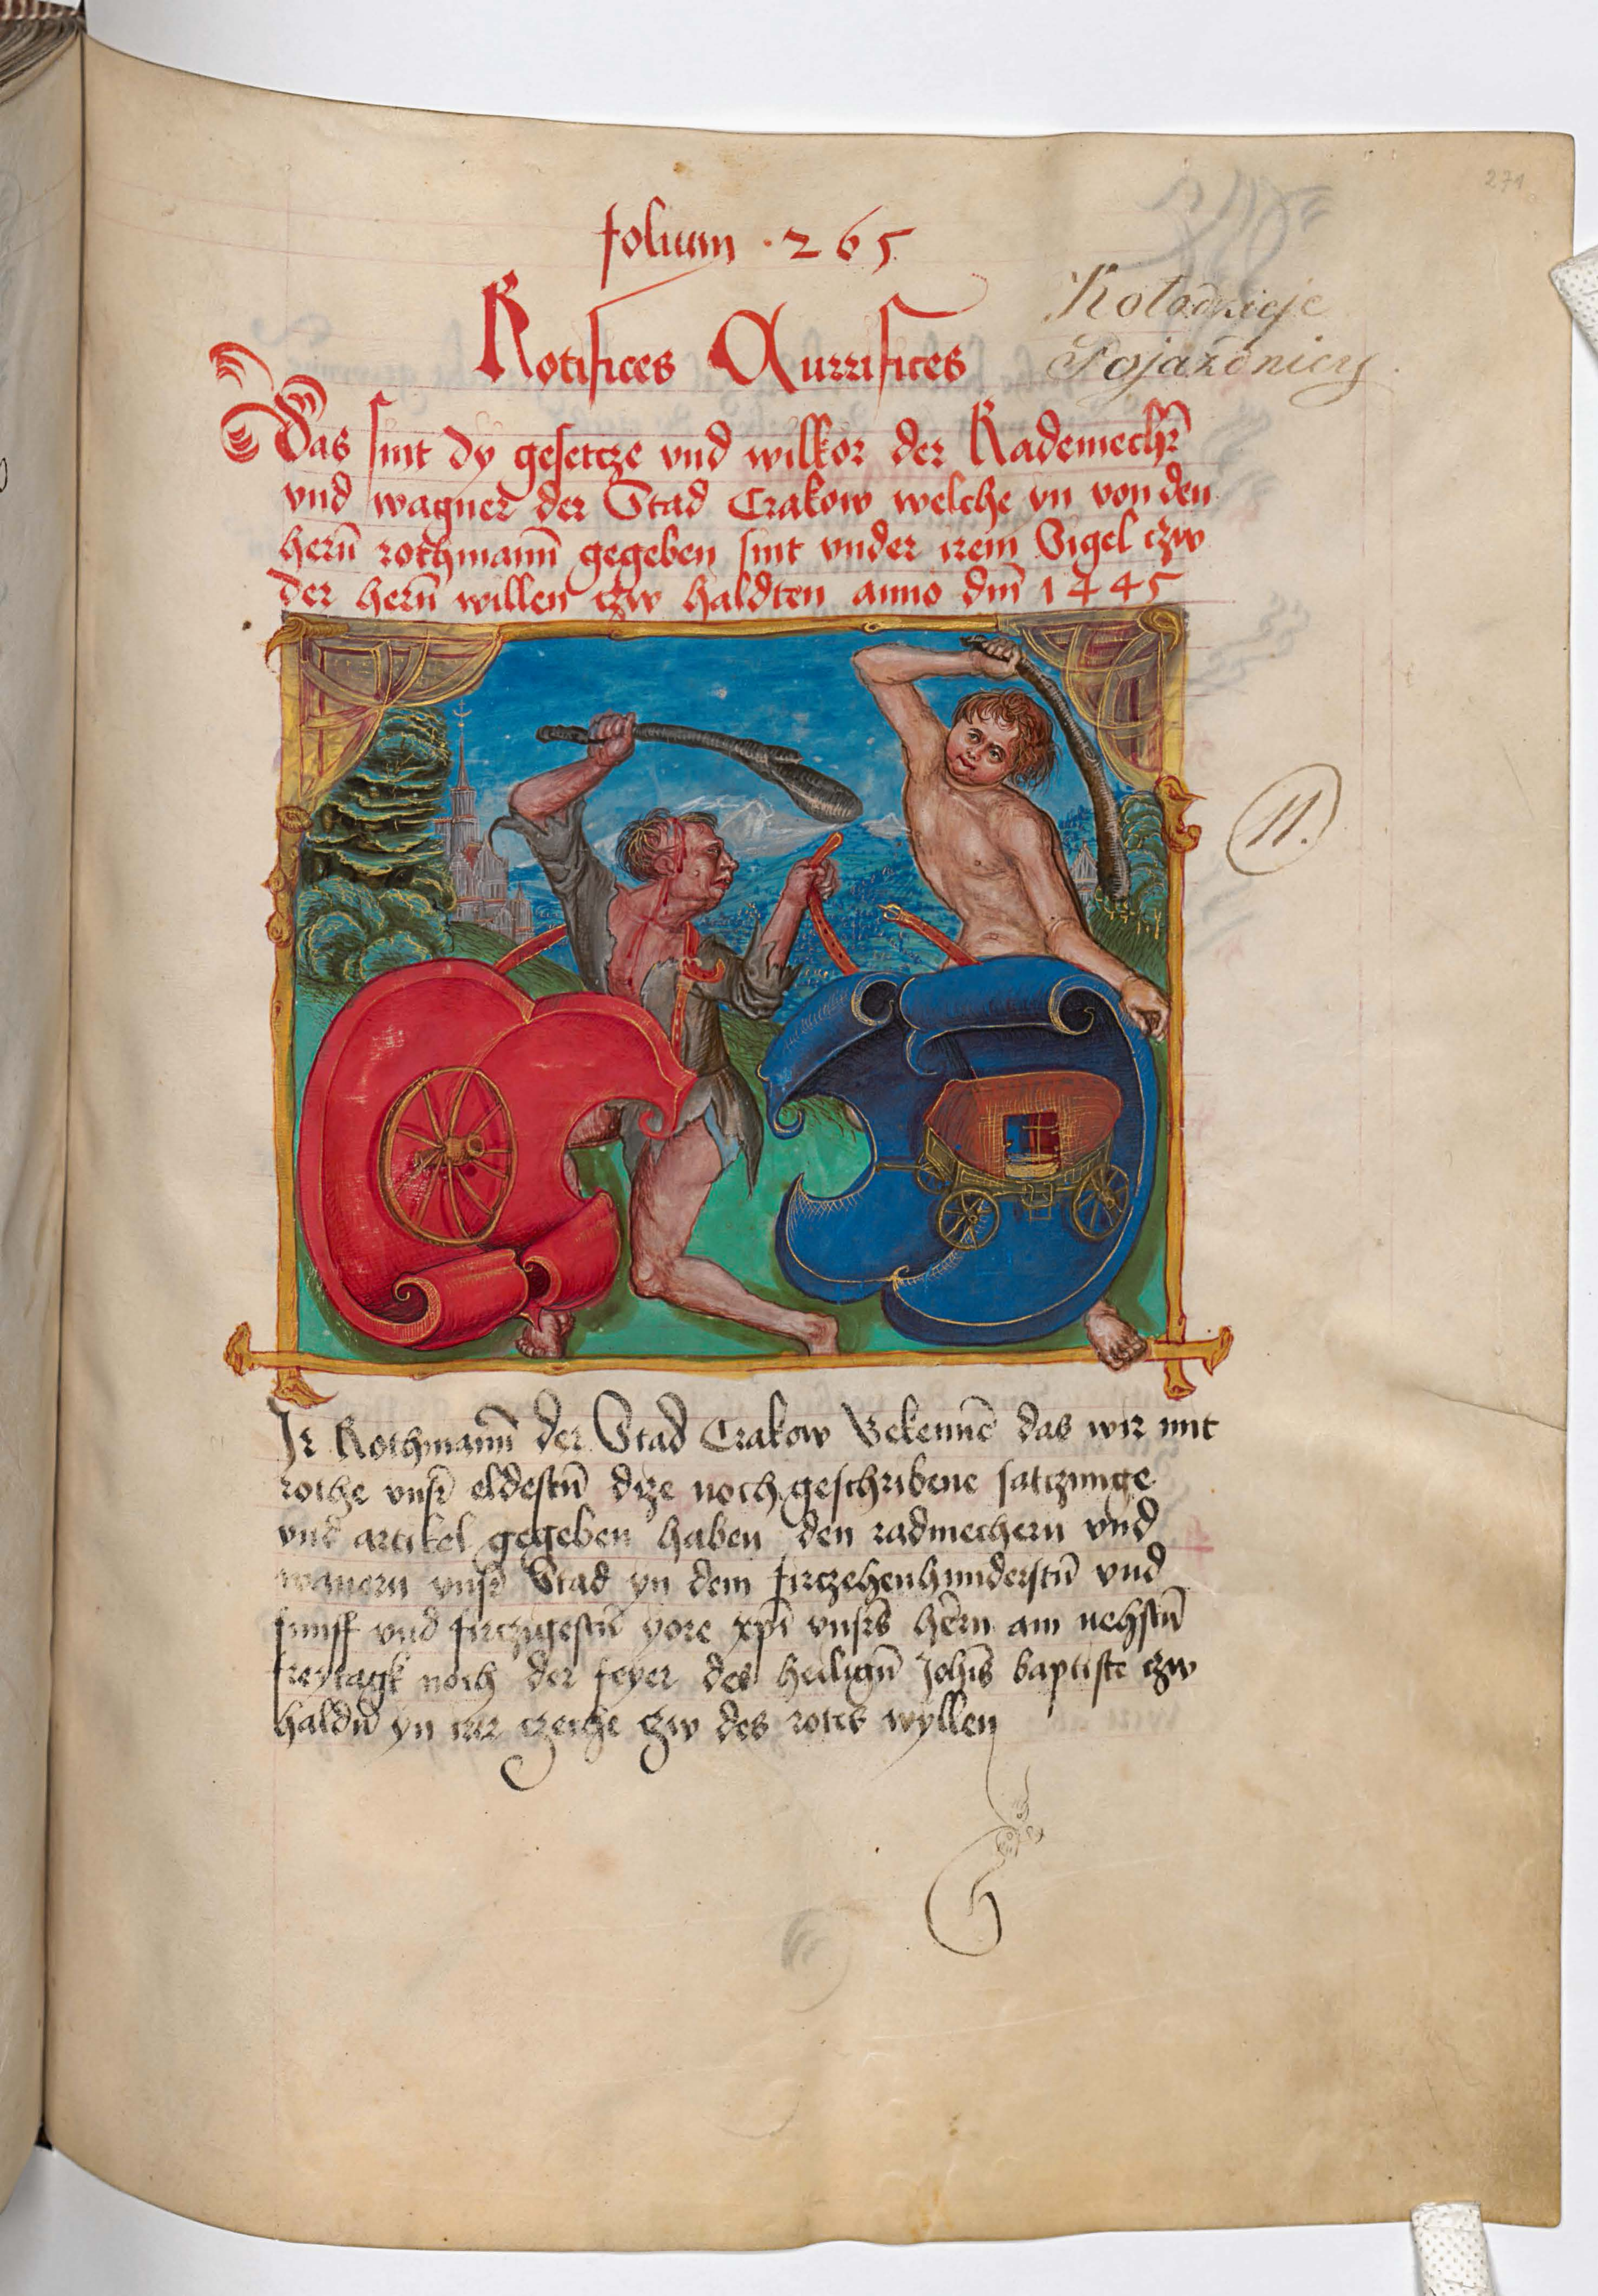 271
folium · 265
Rotifices Currifices
Kołodzieje
Pojazdnicy
Das sint dy gesetcze vnd wilkor der Rademechr̄
vnd wagner der Stad Crakow welche yn von den
herñ rothmann̄ gegeben sint vnder irem Sigel czw
der herñ willen czw haldten anno dm̄ 1445
11.
Ir Rothmann̄ der Stad Crakow Bekenne̅ das wir mit
rothe vnsr̄ eldestn̄ dize noch geschribene satczunge
vnd artikel gegeben haben den radmechern vnd
wanern vnsr̄ Stad yn dem firczehenhunderstn̄ vnd
funff vnd firczigestn̄ yore xp̄i vnsrs̄ hern am nehstn̄
freytagk noch der feyer des heilign̄ Joh̄is baptiste czw
haldn̄ yn irer czeche czw des rotes wyllen